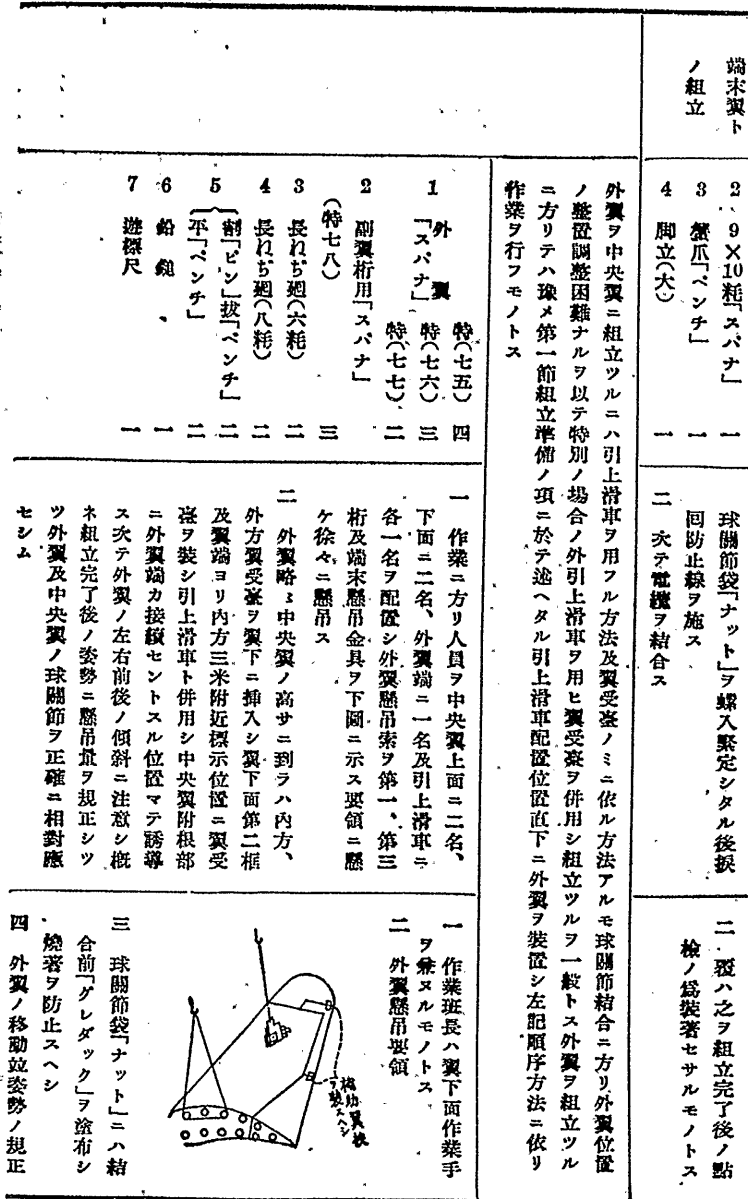 端末翼ト
ノ組立
2 9×10粍「スパナ」 一
3 蟹爪「ペンチ」 一
4 脚立(大) 一
球關節袋「ナット」ヲ螺入緊定シタル後捩
回防止線ヲ施ス
二 次テ電纜ヲ結合ス
二 覆ハ之ヲ組立完了後ノ點
檢ノ爲裝著セサルモノトス
外翼ヲ中央翼ニ組立ツルニハ引上滑車ヲ用フル方法及翼受臺ノミニ依ル方法アルモ球關節結合ニ方リ外翼位置
ノ整置調整困難ナルヲ以テ特別ノ場合ノ外引上滑車ヲ用ヒ翼受臺ヲ併用シ組立ツルヲ一般トス外翼ヲ組立ツル
ニ方リテハ豫メ第一節組立準備ノ項ニ於テ述ヘタル引上滑車配置位置直下ニ外翼ヲ裝置シ左記順序方法ニ依リ
作業ヲ行フモノトス
外翼
1 「スパナ」
特(七五) 四
特(七六) 三
特(七七) 二
2 副翼桁用「スパナ」
(特七八) 三
3 長ねぢ廻(六粍) 二
4 長ねぢ廻(八粍) 二
5 割「ピン」拔「ペンチ」 二
平「ペンチ」 二
6 鉛錘 一
7 遊標尺 一
一 作業ニ方リ人員ヲ中央翼上面ニ二名、
下面ニ二名、外翼端ニ一名及引上滑車ニ
各一名ヲ配置シ外翼懸吊索ヲ第一、第三
桁及端末懸吊金具ヲ下圖ニ示ス要領ニ懸
ケ徐々ニ懸吊ス
二 外翼略〻中央翼ノ高サニ到ラハ内方、
外方翼受臺ヲ翼下ニ挿入シ翼下面第二框
及翼端ヨリ内方三米附近標示位置ニ翼受
臺ヲ裝シ引上滑車ト併用シ中央翼附根部
ニ外翼端カ接續セントスル位置マテ誘導
ス次テ外翼ノ左右前後ノ傾斜ニ注意シ概
ネ組立完了後ノ姿勢ニ懸吊量ヲ規正シツ
ツ外翼及中央翼ノ球關節ヲ正確ニ相對應
セシム
一 作業班長ハ翼下面作業手
ヲ兼ヌルモノトス
二 外翼懸吊要領
補助翼桟
ヲ裝スヘシ
三 球關節袋「ナット」ニハ結
合前「グレダック」ヲ塗布シ
燒著ヲ防止スヘシ
四 外翼ノ移動竝姿勢ノ規正